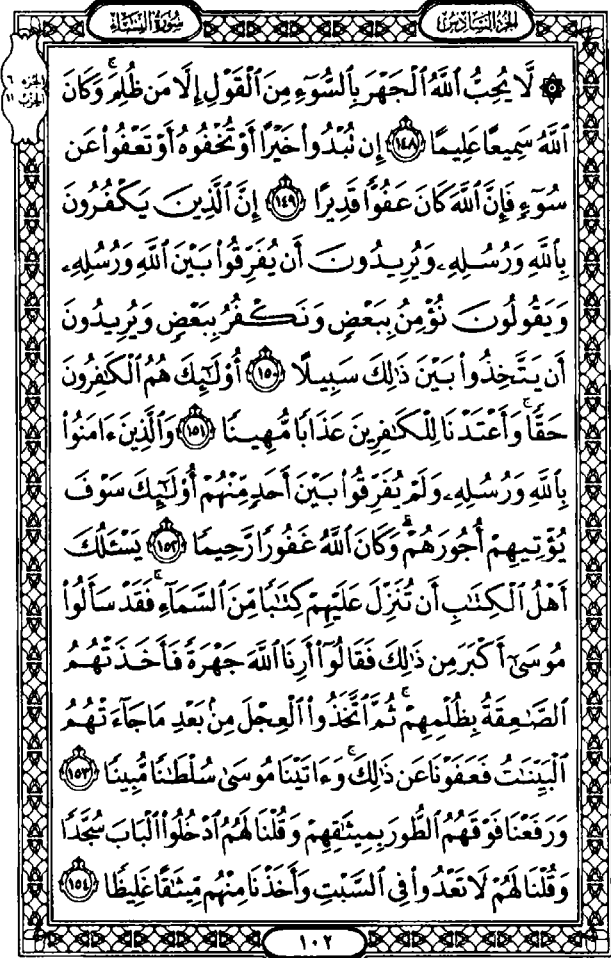 سُورَةُ النِّسَاءِ
الجُزءُ السَّادِسُ
الجزء ٦
الحزب ١١
۞ لَّا يُحِبُّ ٱللَّهُ ٱلْجَهْرَ بِٱلسُّوٓءِ مِنَ ٱلْقَوْلِ إِلَّا مَن ظُلِمَ ۚ وَكَانَ
ٱللَّهُ سَمِيعًا عَلِيمًا ١٤٨ إِن تُبْدُوا۟ خَيْرًا أَوْ تُخْفُوهُ أَوْ تَعْفُوا۟ عَن
سُوٓءٍ فَإِنَّ ٱللَّهَ كَانَ عَفُوًّا قَدِيرًا ١٤٩ إِنَّ ٱلَّذِينَ يَكْفُرُونَ
بِٱللَّهِ وَرُسُلِهِۦ وَيُرِيدُونَ أَن يُفَرِّقُوا۟ بَيْنَ ٱللَّهِ وَرُسُلِهِۦ
وَيَقُولُونَ نُؤْمِنُ بِبَعْضٍ وَنَكْفُرُ بِبَعْضٍ وَيُرِيدُونَ
أَن يَتَّخِذُوا۟ بَيْنَ ذَٰلِكَ سَبِيلًا ١٥٠ أُو۟لَٰٓئِكَ هُمُ ٱلْكَٰفِرُونَ
حَقًّا ۚ وَأَعْتَدْنَا لِلْكَٰفِرِينَ عَذَابًا مُّهِينًا ١٥١ وَٱلَّذِينَ ءَامَنُوا۟
بِٱللَّهِ وَرُسُلِهِۦ وَلَمْ يُفَرِّقُوا۟ بَيْنَ أَحَدٍ مِّنْهُمْ أُو۟لَٰٓئِكَ سَوْفَ
يُؤْتِيهِمْ أُجُورَهُمْ ۗ وَكَانَ ٱللَّهُ غَفُورًا رَّحِيمًا ١٥٢ يَسْـَٔلُكَ
أَهْلُ ٱلْكِتَٰبِ أَن تُنَزِّلَ عَلَيْهِمْ كِتَٰبًا مِّنَ ٱلسَّمَآءِ ۚ فَقَدْ سَأَلُوا۟
مُوسَىٰٓ أَكْبَرَ مِن ذَٰلِكَ فَقَالُوٓا۟ أَرِنَا ٱللَّهَ جَهْرَةً فَأَخَذَتْهُمُ
ٱلصَّٰعِقَةُ بِظُلْمِهِمْ ۚ ثُمَّ ٱتَّخَذُوا۟ ٱلْعِجْلَ مِنۢ بَعْدِ مَا جَآءَتْهُمُ
ٱلْبَيِّنَٰتُ فَعَفَوْنَا عَن ذَٰلِكَ ۚ وَءَاتَيْنَا مُوسَىٰ سُلْطَٰنًا مُّبِينًا ١٥٣
وَرَفَعْنَا فَوْقَهُمُ ٱلطُّورَ بِمِيثَٰقِهِمْ وَقُلْنَا لَهُمُ ٱدْخُلُوا۟ ٱلْبَابَ سُجَّدًا
وَقُلْنَا لَهُمْ لَا تَعْدُوا۟ فِى ٱلسَّبْتِ وَأَخَذْنَا مِنْهُم مِّيثَٰقًا غَلِيظًا ١٥٤
١٠٢